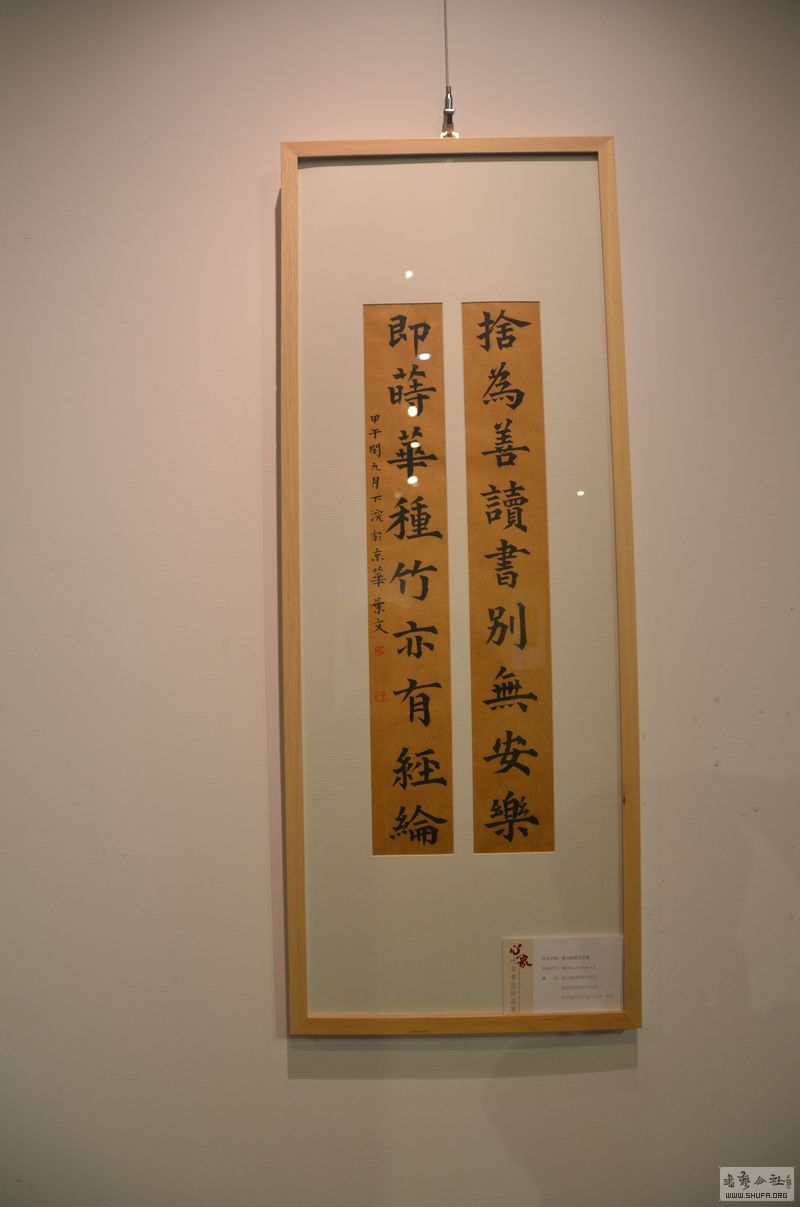 捨為善讀書別無安樂
即蒔華種竹亦有經綸
甲午閏九月下浣於京華 葉文
心象
WWW.SHUFA.ORG